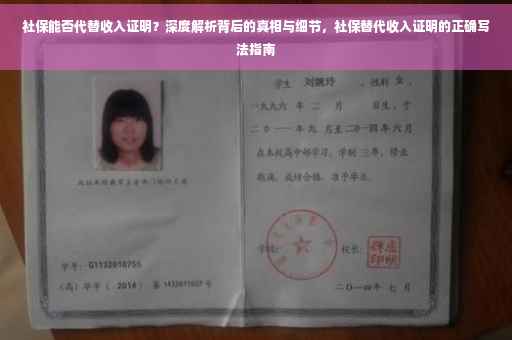 社保能否代替收入证明？深度解析背后的真相与细节，社保替代收入证明的正确写
法指南
学生 刘婉玲 ，性别 女 ，
一九九六 年 二 月 日生，于
二〇一一 年 九 月至 二〇一四 年 六 月
在本校高中部学习，学制 三 年，修业
期满，成绩合格，准予毕业。
学校： 校长：
学号： G1132010755
（高）毕字（ 2014 ）第 1432011007 号
二〇一四年 七 月